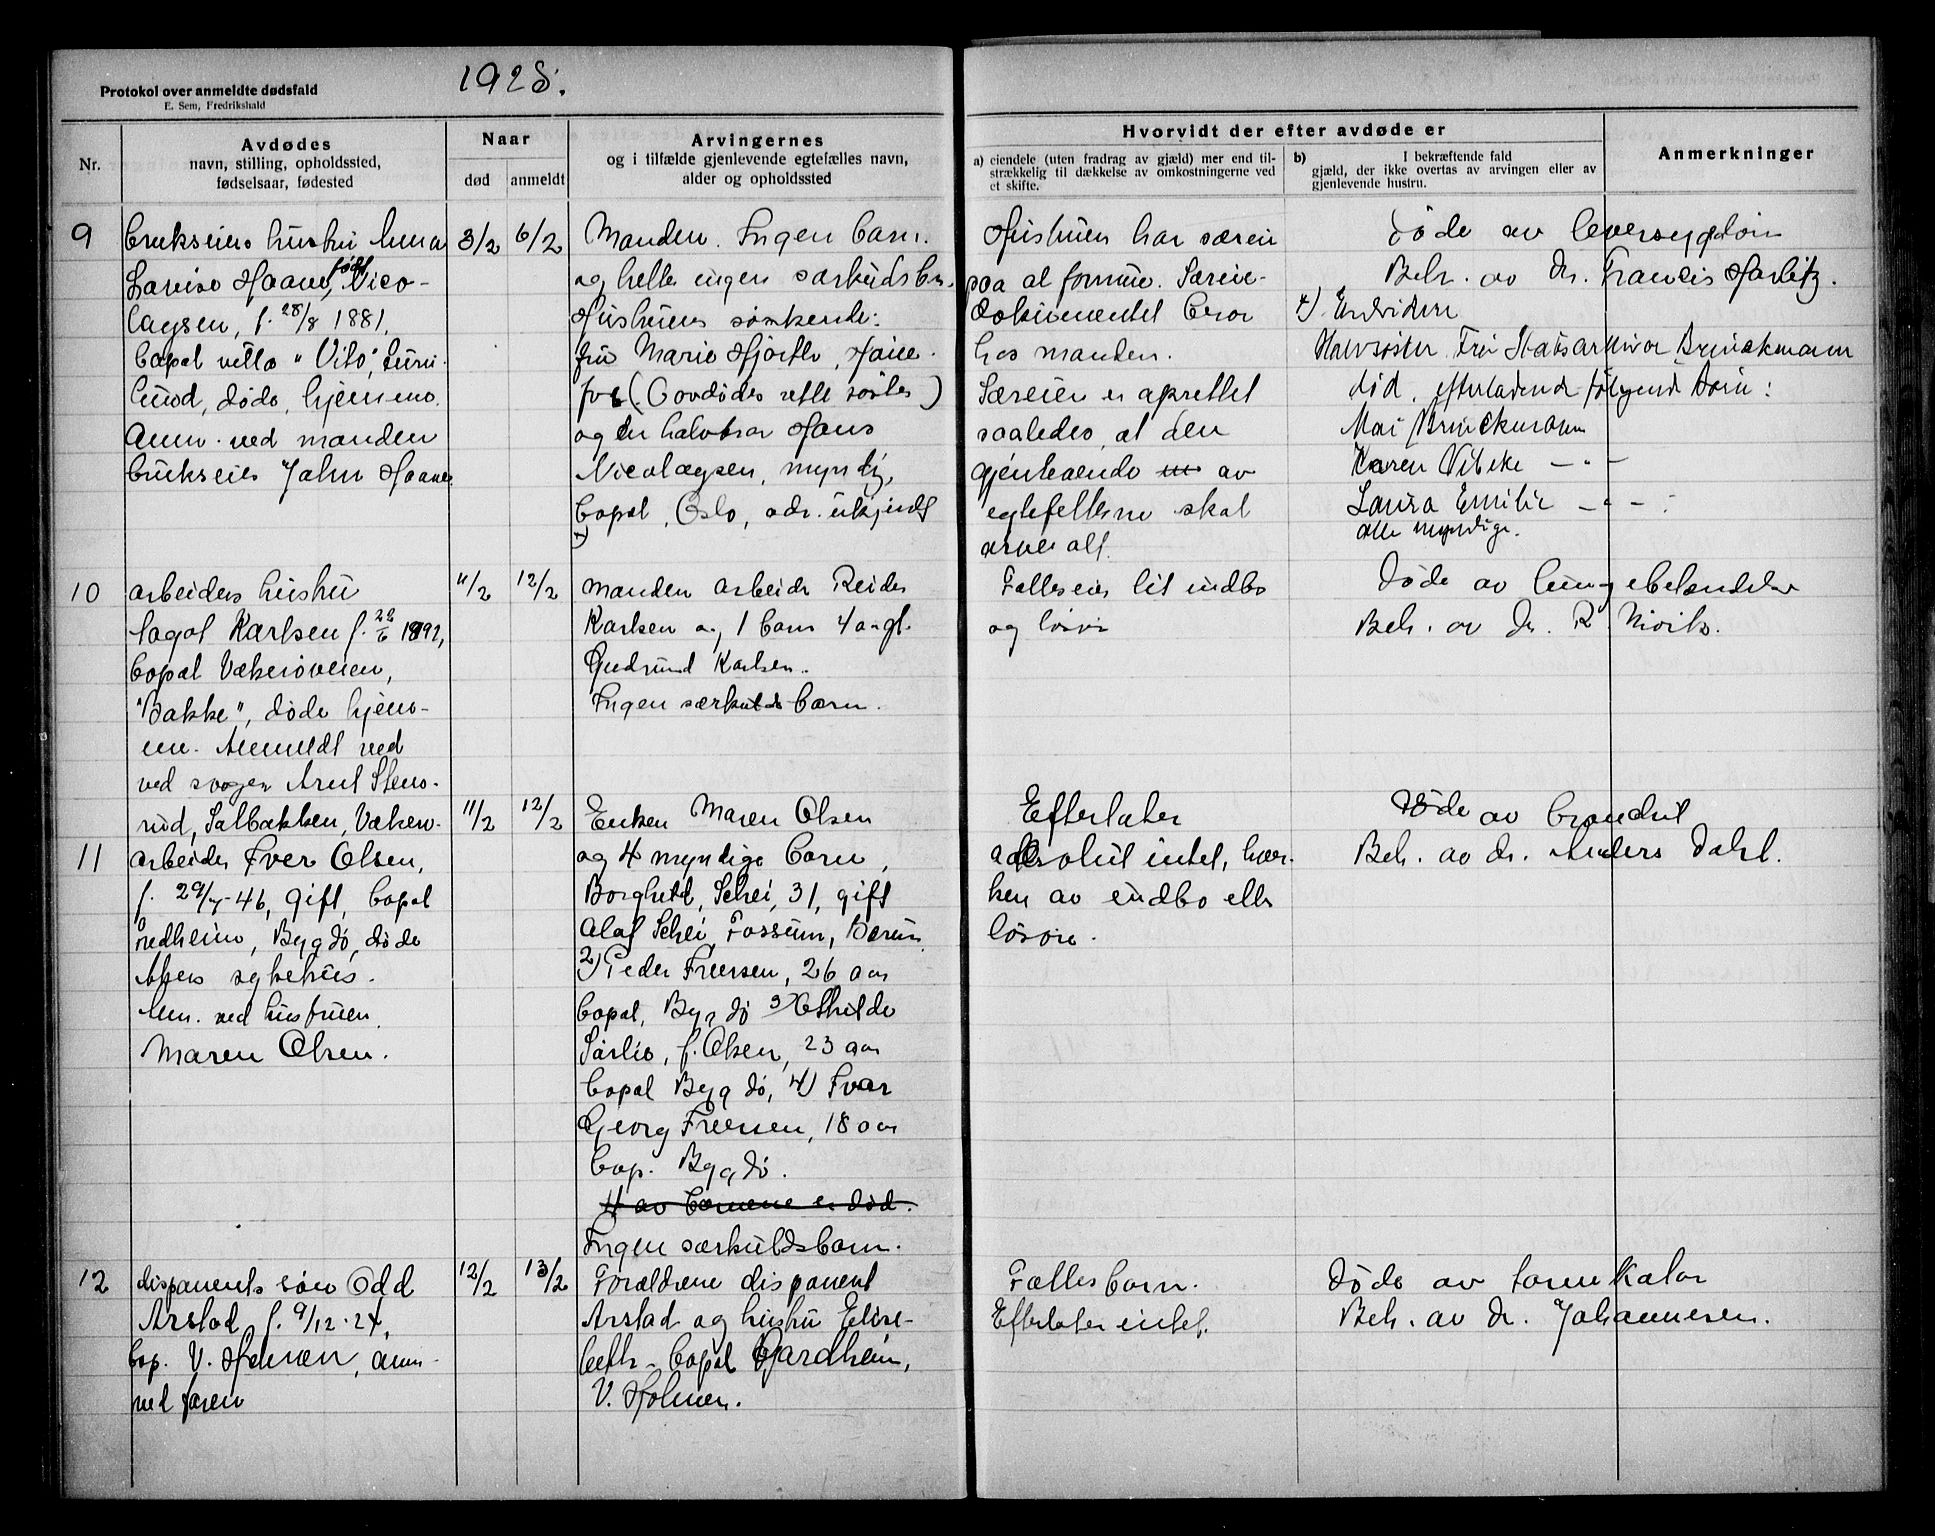 Protokol over anmeldte dødsfald
E. Sem, Fredrikshald
1928.
Nr.
Avdødes
navn, stilling, opholdssted,
fødselsaar, fødested
Naar
død
anmeldt
Arvingernes
og i tilfælde gjenlevende egtefælles navn,
alder og opholdssted
Hvorvidt der efter avdøde er
a) eiendele (uten fradrag av gjæld) mer end til-
strækkelig til dækkelse av omkostningerne ved
et skifte.
b) I bekræftende fald
gjæld, der ikke overtas av arvingen eller av
gjenlevende hustru.
Anmerkninger
9
brukseiers hustru Anna
Lovise Haave, født Nico-
laysen, f. 28/8 1881,
bopæl villa "Vito",
død, hjemme.
Anm. ved manden
brukseier John Haave
3/2
6/2
Manden. Ingen barn.
og heller ingen særkuldsbn.
Hustruens søskende:
fru Marie Hjorth,
(avdødes rette søster)
og en halvbror Hans
Nicolaysen, myndig,
bopæl, Oslo, adr. ukjendt
x)
Hustruen har særeie
paa al formue. Særeie-
dokumentet beror
hos manden.
Særeien er oprettet
saaledes, at den
gjenlevende av
egtefellerne skal
arve alt.
Døde av leversygdom
Beh. av Dr. Francis Harbitz.
x) Endvidere
Halvsøster Fru Statsarkivar Brinckmann
død, efterladende følgende barn:
Mai Brinckmann
Karen Vibeke — " —
Laura Emilie — " —
alle myndige.
10
arbeiders hustru
Karlsen f. 22/6 1892,
bopæl Vækerøveien,
"Bakke", døde hjem-
me. Anmeldt ved
ved svoger Arnt Stens-
rud, Solbakken, Vækerø.
11/2
12/2
manden arbeider Reidar
Karlsen og 1 barn 4 a gl.
Gudrund Karlsen.
Ingen særkuldsbarn.
Felleseie lit indbo
og løsøre
Døde av lungebetændelse
Beh. av Dr. R.
11
arbeider Iver Olsen,
gift, bopæl
Fredheim, Bygdø, døde
Akers sykehus.
Anm. ved hustruen
Maren Olsen.
11/2
12/2
Enken Maren Olsen
og 4 myndige barn,
Borghild, Schei, 31, gift
Olaf Schei, Fossum, Bærum
2) Peder Iversen, 26 aar
bopæl, Bygdø 3)
Sørlie, f. Olsen, 23 aar
bopæl Bygdø, 4) Ivar
Georg Iversen, 18 aar
bop. Bygdø.
4 av barnene er død.
Ingen særkuldsbarn.
Efterlater
absolut intet, hver-
ken av indbo eller
løsøre.
Døde av brandsot
Beh. av dr. Anders Dahl.
12
disponents søn Odd
Arstad f. 9/12-24,
bop. V. Holmen, anm.
ved faren
12/2
13/2
Forældrene disponent
Arstad og hustru Elisa-
beth - bopæl Gardheim,
V. Holmen.
Fælles barn.
Efterlater intet.
Døde av tarmkatar
Beh. av Dr. Johannesen.